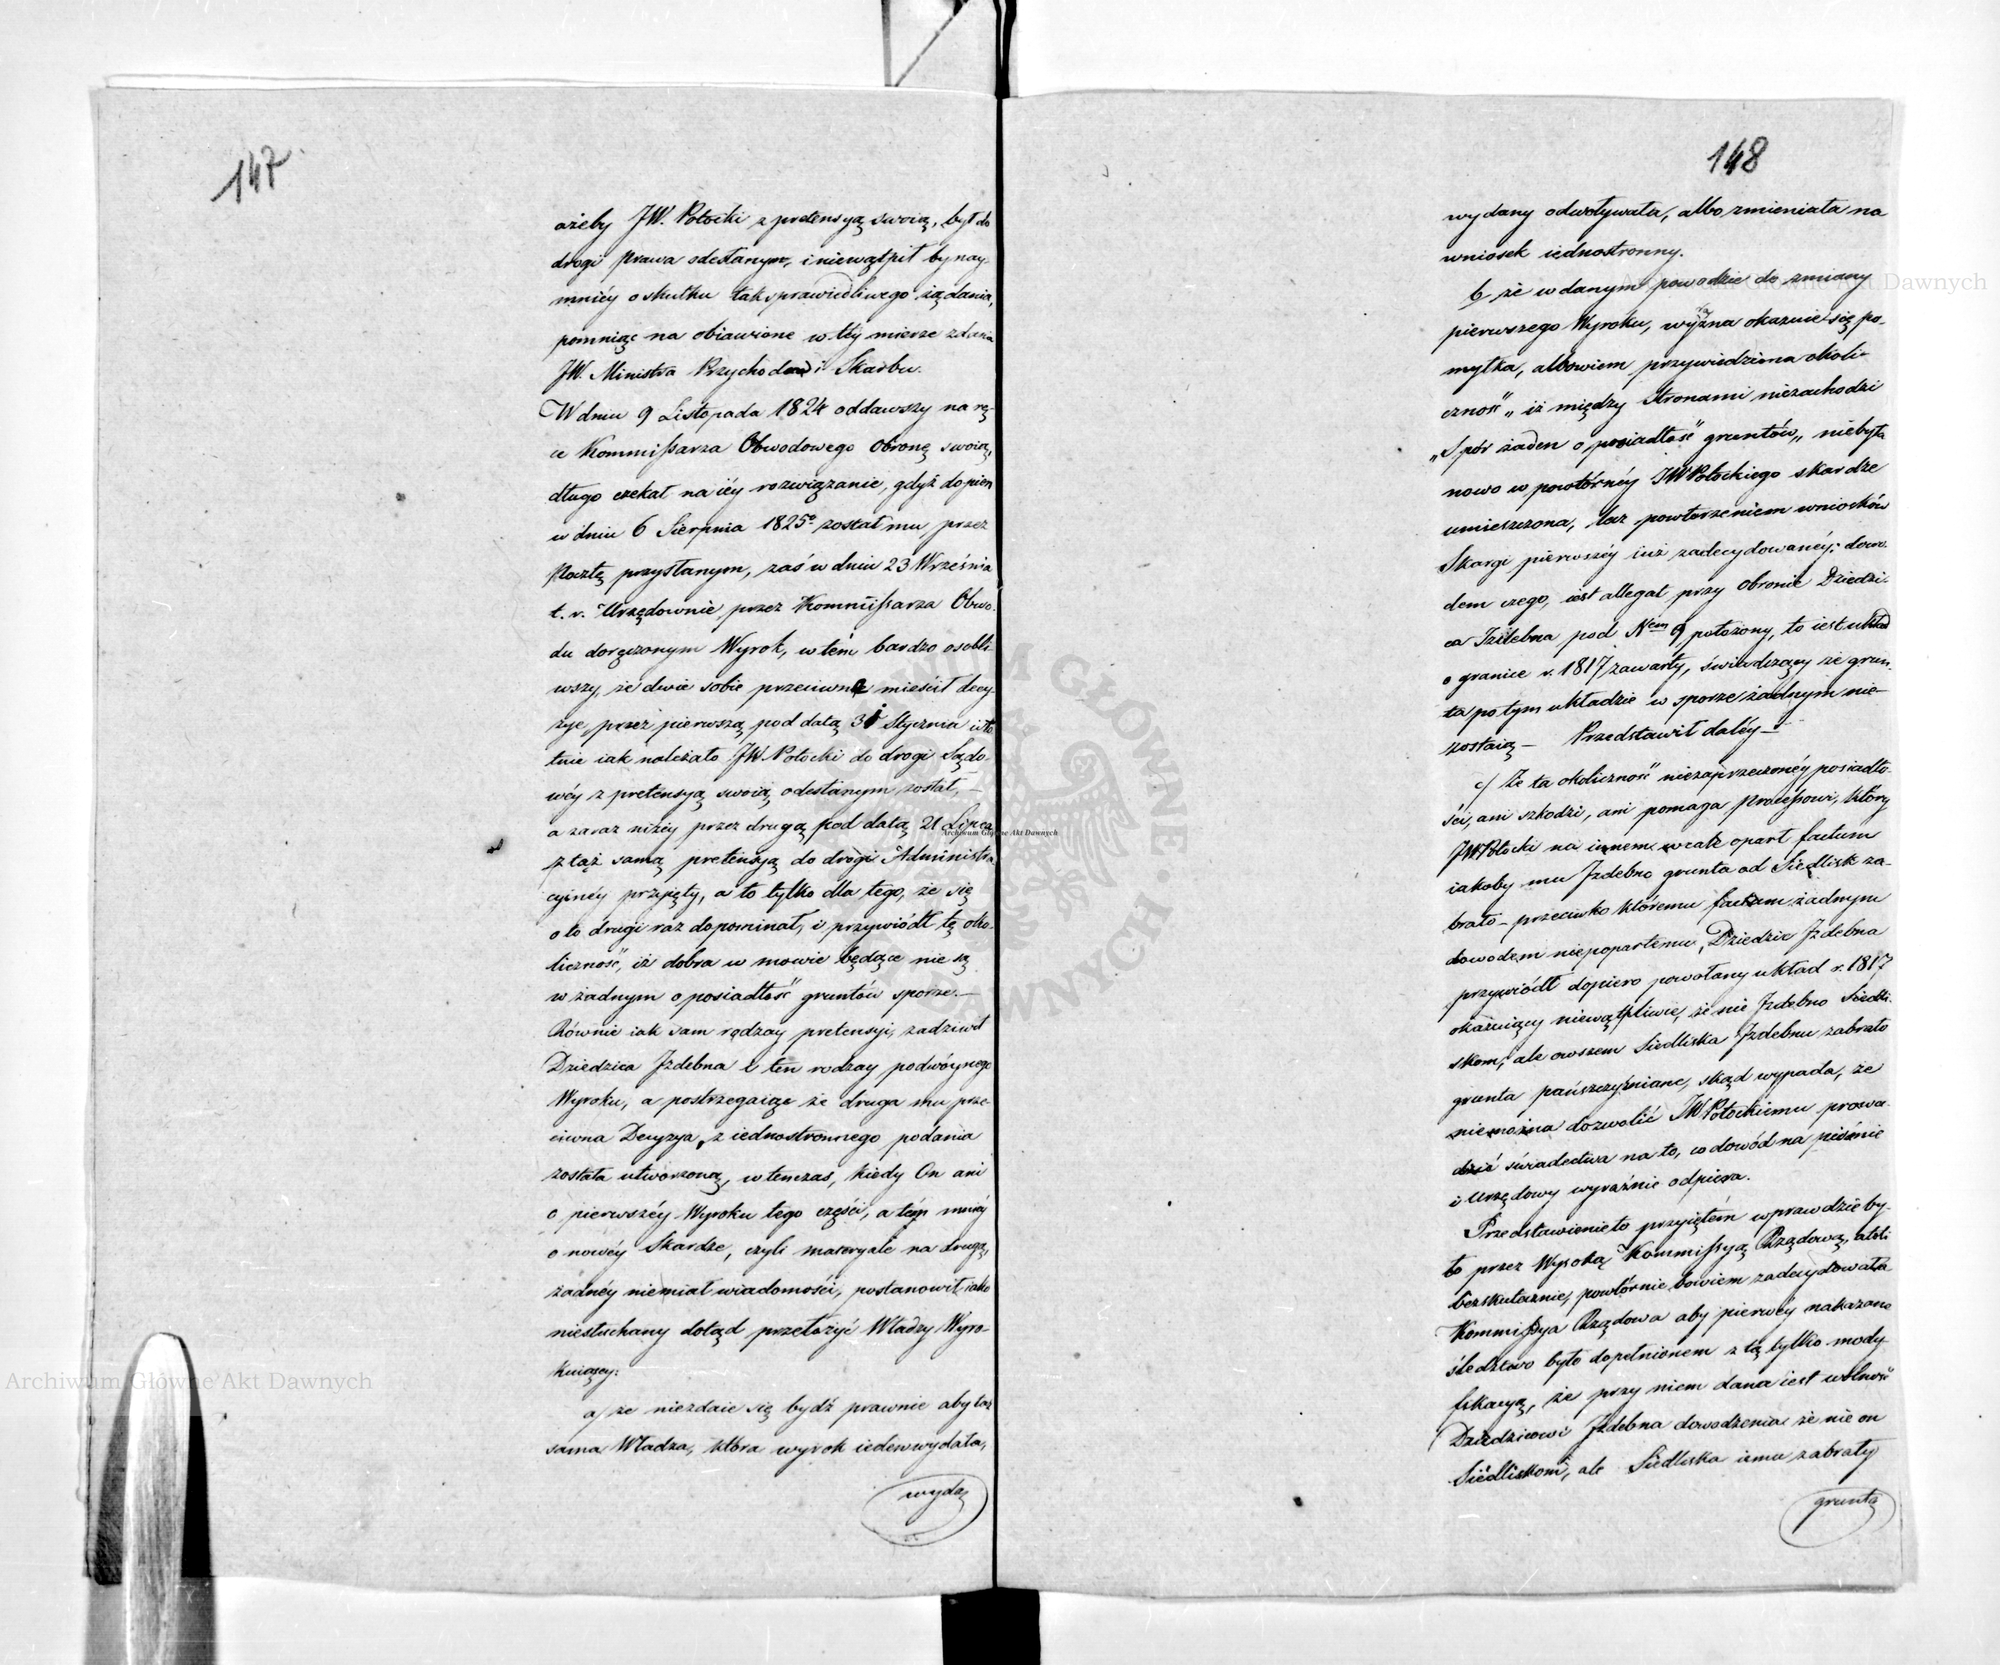 147
ażeby JW. Potocki z pretensyą swoią, był do
drogi prawa odesłanym, i niewątpił by nay-
mniéy o skutku tak sprawiedliwego żądania,
pomniąc na obiawione w téy mierze zdania
JW. Ministra Przychodów i Skarbu.
W dniu 9 Listopada 1824 oddawszy na rę-
ce Kommissarza Obwodowego Obronę swoią,
długo czekał na iéy rozwiązanie, gdyż dopiero
w dniu 6 Sierpnia 1825 został mu przez
Pocztę przysłanym, zaś w dniu 23 Września
t. r. Urzędownie przez Kommissarza Obwo-
du doręczonym Wyrok, w tém bardzo osobli-
wszy, że dwie sobie przeciwne mieścił decy-
zye, przez pierwszą pod datą 31 Stycznia isto-
tnie iak należało JW Potocki do drogi Sądo-
wéy z pretensyą swoią odesłanym został, —
a zaraz niżéy przez drugą pod datą 21 Lipca
z tąż samą pretensyą do drogi Administra-
cyinéy przyięty, a to tylko dla tego, że się
o to drugi raz dopominał, i przywiódł tę oko-
liczność, iż dobra w mowie będące nie są
w żadnym o posiadłość gruntów sporze. —
Równie iak sam rodzay pretensyi, zadziwił
Dziedzica Jzdebna i ten rodzay podwóynego
Wyroku, a postrzegaiąc że druga mu prze-
ciwna Decyzya, z iednostronnego podania
została utworzoną, w tenczas, kiedy On ani
o pierwszéy Wyroku tego części, a tém mniéy
o nowéy Skardze, czyli materyale na drugą,
żadnéy niemiał wiadomości, postanowił, iako
niesłuchany dotąd przełożyć Władzy Wyro-
kuiącéy:
a/ że niezdaie się bydź prawnie aby taż
sama Władza, która wyrok ieden wydała,
wyda
148
wydany odwoływała, albo zmieniała na
wniosek iednostronny.
b/ że w danym powodzie do zmiany
pierwszego Wyroku, wyraźna okazuie się po-
myłka, albowiem przywiedziona okoli-
czność „iż między Stronami niezachodzi
„Spór żaden o posiadłość gruntów„ niebyła
nowo w powtórnéy JW Potockiego skardze
umieszczona, lecz powtorzeniem wniosków
Skargi pierwszéy iuż zadecydowanéy; dowo-
dem czego, iest allegat przy obronie Dziedzi-
ca Jzdebna pod Nrem 9 położony, to iest układ
o granice r. 1817 zawarty, świadczący że grun-
ta po tym układzie w sporze żadnym nie-
zostaią — Przedstawił daléy —
c/ Że ta okoliczność niezaprzeczonéy posiadło-
ści, ani szkodzi, ani pomaga Processowi, który
JW Potocki na innem wcale oparł factum
iakoby mu Jzdebno grunta od Siedlisk za-
brało — przeciwko któremu factum żadnym
dowodem niepopartemu, Dziedzic Jzdebna
przywiódł dopiero powołany układ r. 1817
okazuiący niewątpliwie, że nie Jzdebno Siedli-
skom, ale owszem Siedliska Jzdebnu zabrało
grunta pańszczyźniane, skąd wypada, że
niemożna dozwolić JW Potockiemu prowa-
dzić świadectwa na to, co dowód na piśmie
i Urzędowy wyraźnie odpiera.
Przedstawienie to przyiętém wprawdzie by-
ło przez Wysoką Kommissyą Rządową, atoli
bezskutecznie, powtórnie bowiem zadecydowała
Kommissya Rządowa aby pierwéy nakazane
śledztwo było dopełnionem z tą tylko mody-
fikacyą, że przy niem dana iest wolność
Dziedzicowi Jzdebna dowodzenia że nie on
Siedliskom, ale Siedliska iemu zabrały
grunta
Archiwum Główne Akt Dawnych